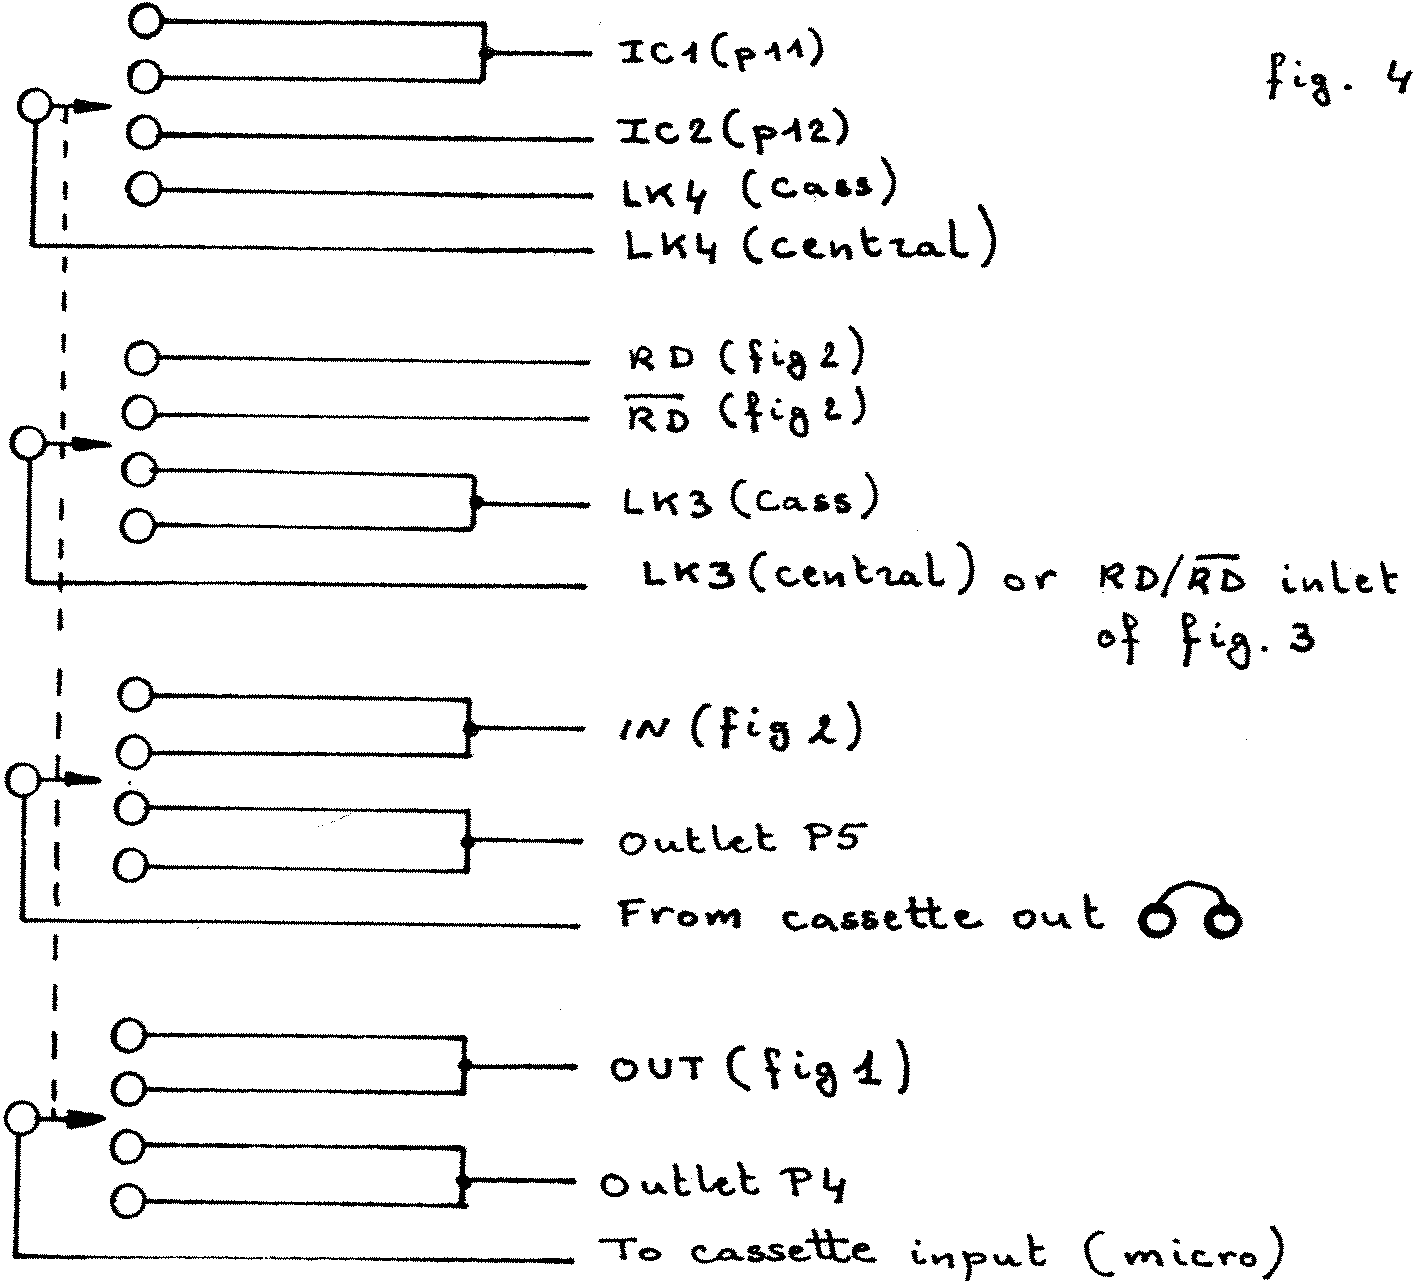 IC1(p11)
fig. 4
IC2(p12)
LK4 (Cass)
LK4 (central)
RD (fig 2)
R̅D̅ (fig 2)
LK3 (Cass)
LK3 (central) or RD/R̅D̅ inlet
of fig. 3
IN (fig 2)
Outlet P5
From cassette out
OUT (fig 1)
Outlet P4
To cassette input (micro)